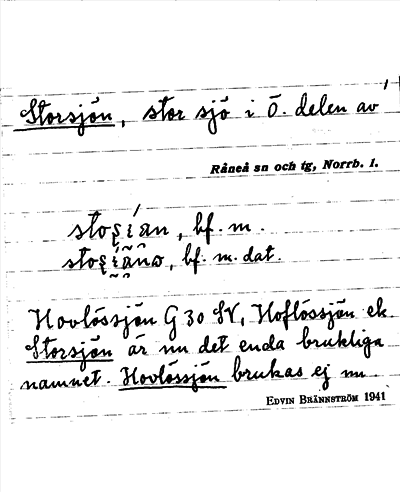 Storsjön, stor sjö i Ö. delen av
Råneå sn och tg, Norrb. l.
bf. m.
bf. m. dat.
Hovlössjön G 30 SV, Hoflössjön ek.
Storsjön är nu det enda brukliga
namnet. Hovlössjön brukas ej nu.
EDVIN BRÄNNSTRÖM 1941